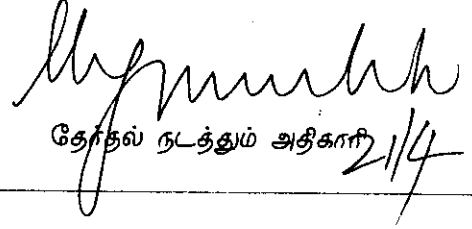 தேர்தல் நடத்தும் அதிகாரி
21/4